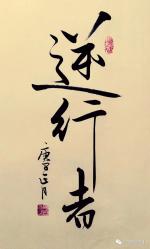 逆行者
庚子正月